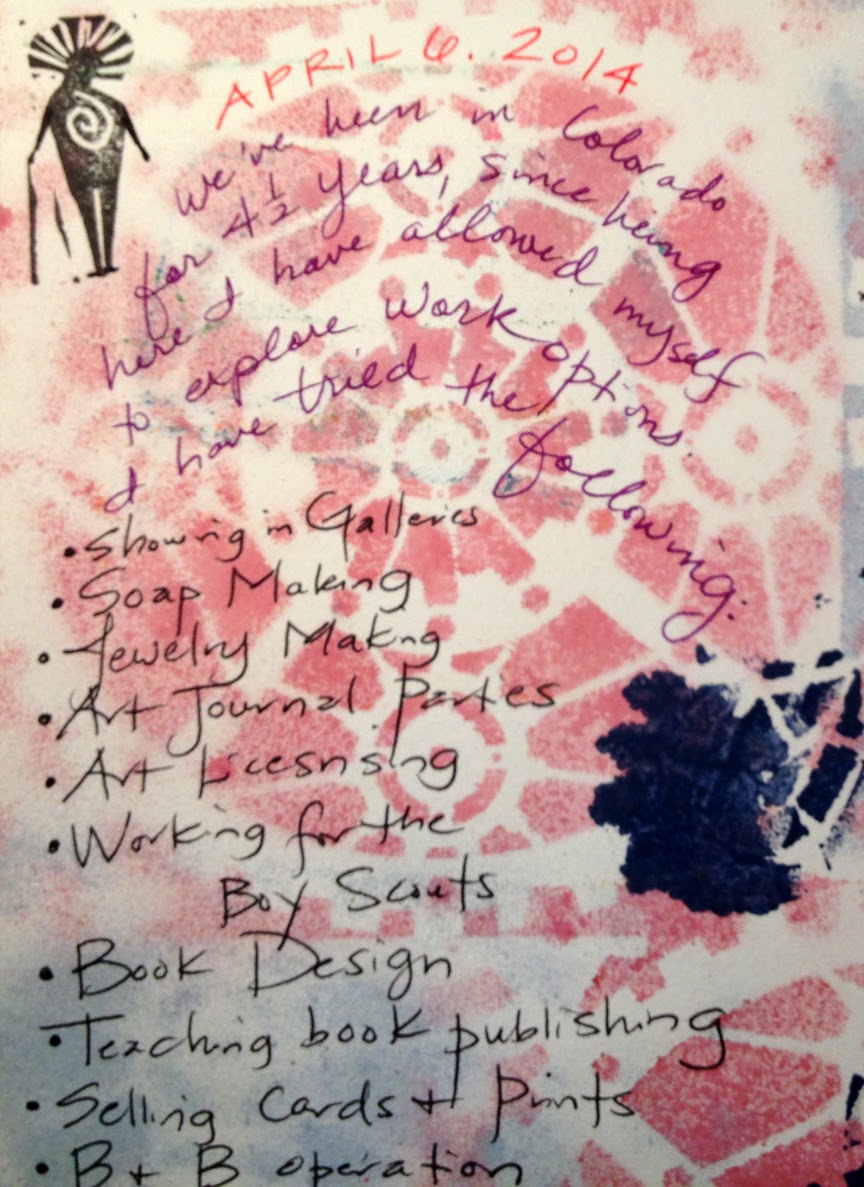 APRIL 6. 2014
We've been in Colorado
for 4½ years, since being
here I have allowed myself
to explore work options.
I have tried the following:
• Showing in Galleries
• Soap Making
• Jewelry Making
• Art Journal Parties
• Art Licesnsing
• Working for the
Boy Scouts
• Book Design
• Teaching book publishing
• Selling Cards + Prints
• B + B operation